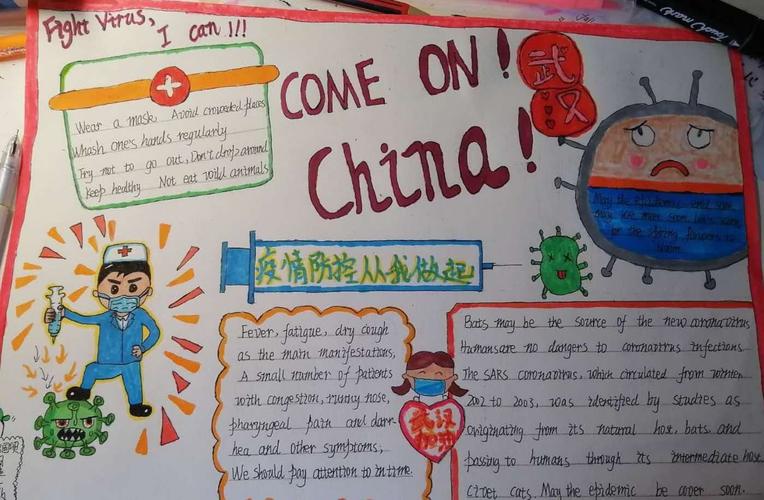 Fight Virus,
I can!!!
COME ON!
China!
武
汉
Wear a mask. Avoid crowded places
Whash one's hands regularly
Try not to go out, Don't drop around
Keep healthy Not eat wild animals
May the epidemic end soon,
may we meet soon. Let's wait
for the spring flowers to
bloom.
疫情防控从我做起
Fever, fatigue, dry cough
as the main manifestations,
A small number of patients
with congestion, runny nose,
pharyngeal pain and diarr-
hea and other symptoms,
We should pay attention to in time.
武汉
加油
Bats may be the source of the new coronavirus
Humans are no dangers to coronavirus infections.
The SARS coronavirus, which circulated from winter
2002 to 2003, was identified by studies as
originating from its natural host, bats, and
passing to humans through its intermediate host
civet cats. May the epidemic be over soon.